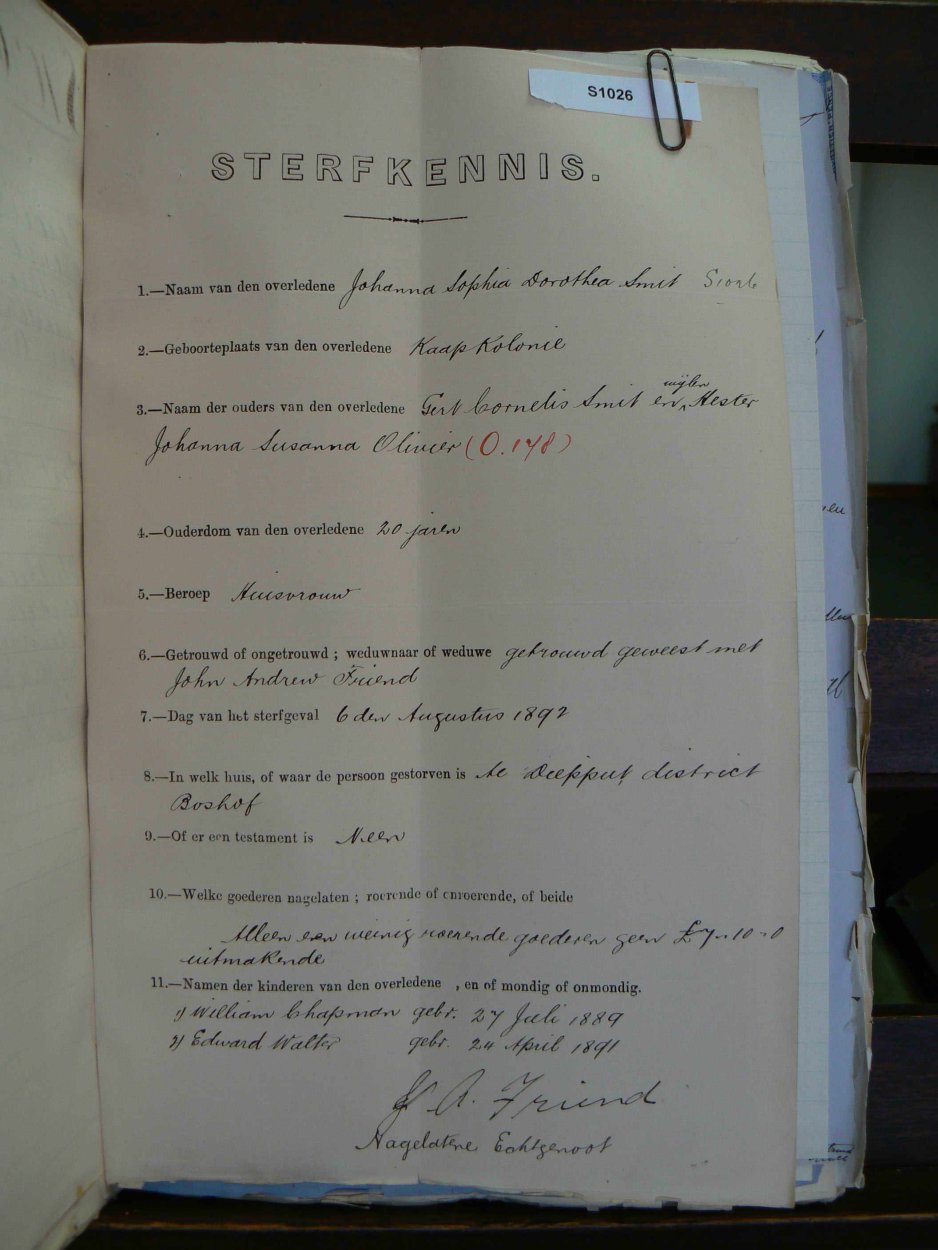 S1026
STERFKENNIS.
1.—Naam van den overledene Johanna Sophia Dorothea Smit S1026
2.—Geboorteplaats van den overledene Kaap Kolonie
wijlen
3.—Naam der ouders van den overledene Gert Cornelis Smit en Hester
Johanna Susanna Olivier (O.178)
4.—Ouderdom van den overledene 20 jaren
5.—Beroep Huisvrouw
6.—Getrouwd of ongetrouwd ; weduwnaar of weduwe getrouwd geweest met
John Andrew Friend
7.—Dag van het sterfgeval 6 den Augustus 1892
8.—In welk huis, of waar de persoon gestorven is te Diepput district
Boshof
9.—Of er een testament is Neen
10.—Welke goederen nagelaten ; roerende of onroerende, of beide
Alleen een weinig roerende goederen geen £7-10-0
uitmakende
11.—Namen der kinderen van den overledene , en of mondig of onmondig.
1) William Chapman gebr. 27 Juli 1889
2) Edward Walter gebr. 24 April 1891
J A. Friend
Nagelatene Echtgenoot